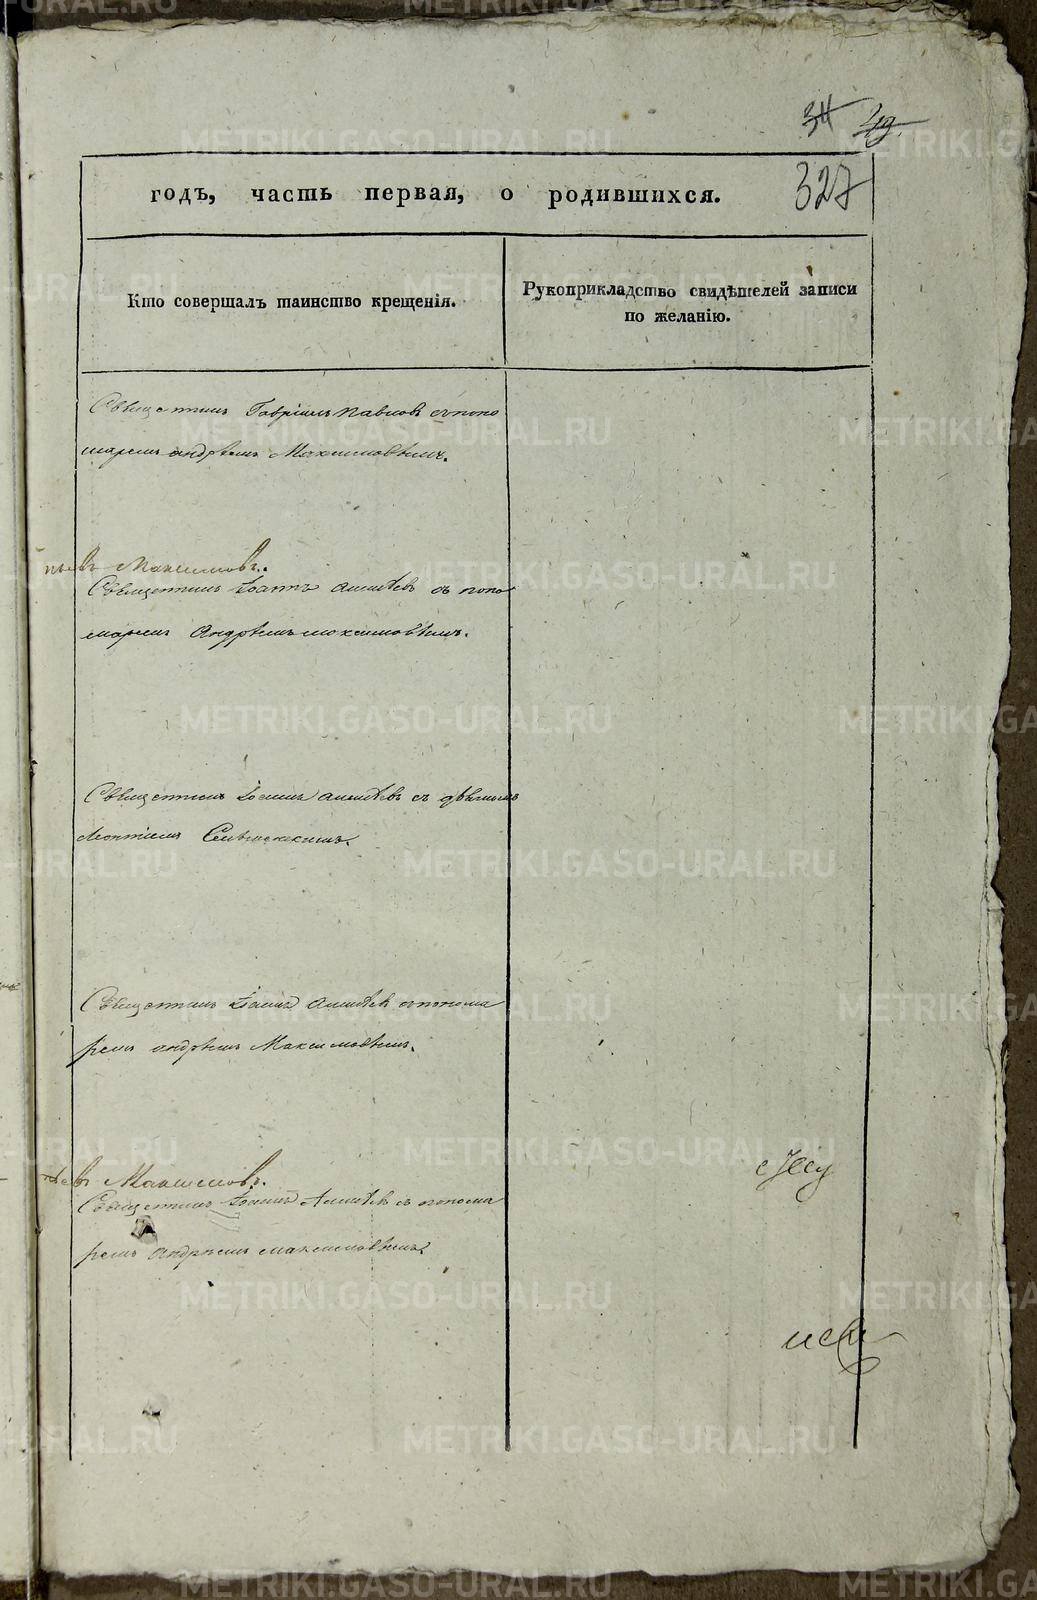 34 29
327
годъ, часть первая, о родившихся.
Кто совершалъ таинство крещенія.
Рукоприкладство свидѣтелей записи
по желанію.
Священникъ Гавріилъ Павловъ съ поно
маремъ Андрѣемъ Максимовымъ.
Максимовъ.
Священникъ Іоаннъ съ поно
маремъ Андрѣемъ Максимовымъ.
Священникъ Іоаннъ съ
Леонтіемъ
Священникъ Іоаннъ съ понома
ремъ Андрѣемъ Максимовымъ.
Максимовъ.
Священникъ Іоаннъ съ понома
ремъ Андрѣемъ Максимовымъ.
METRIKI.GASO-URAL.RU